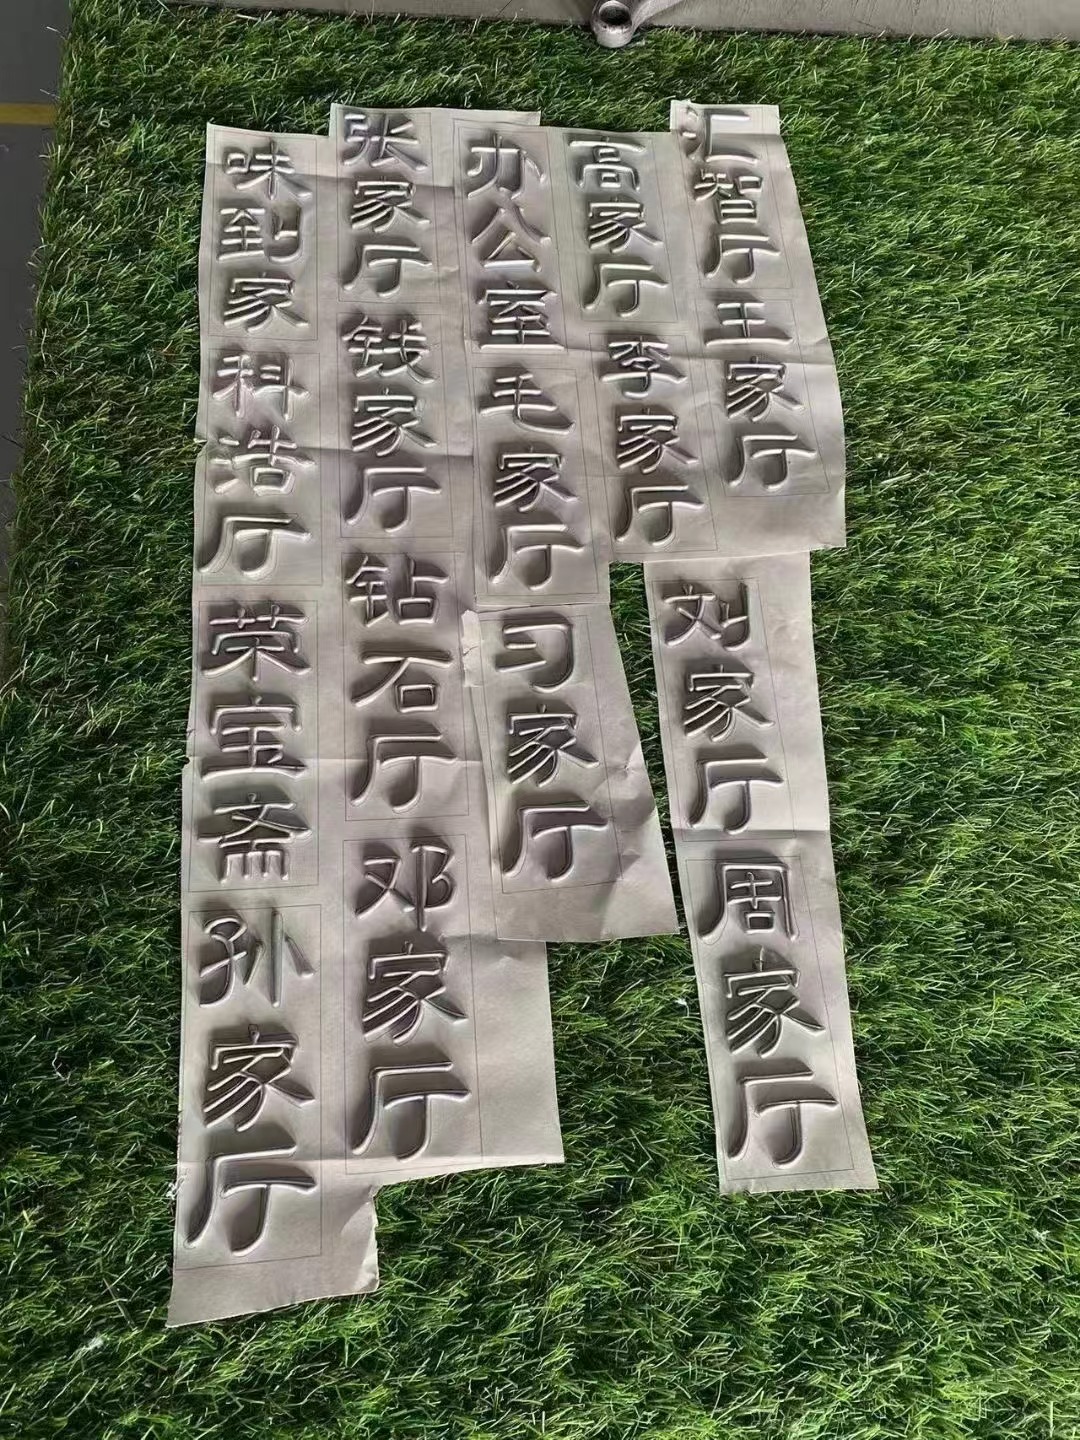 味到家
科浩厅
荣宝斋
孙家厅
张家厅
钱家厅
钻石厅
邓家厅
办公室
毛家厅
习家厅
高家厅
李家厅
汇智厅
王家厅
刘家厅
周家厅